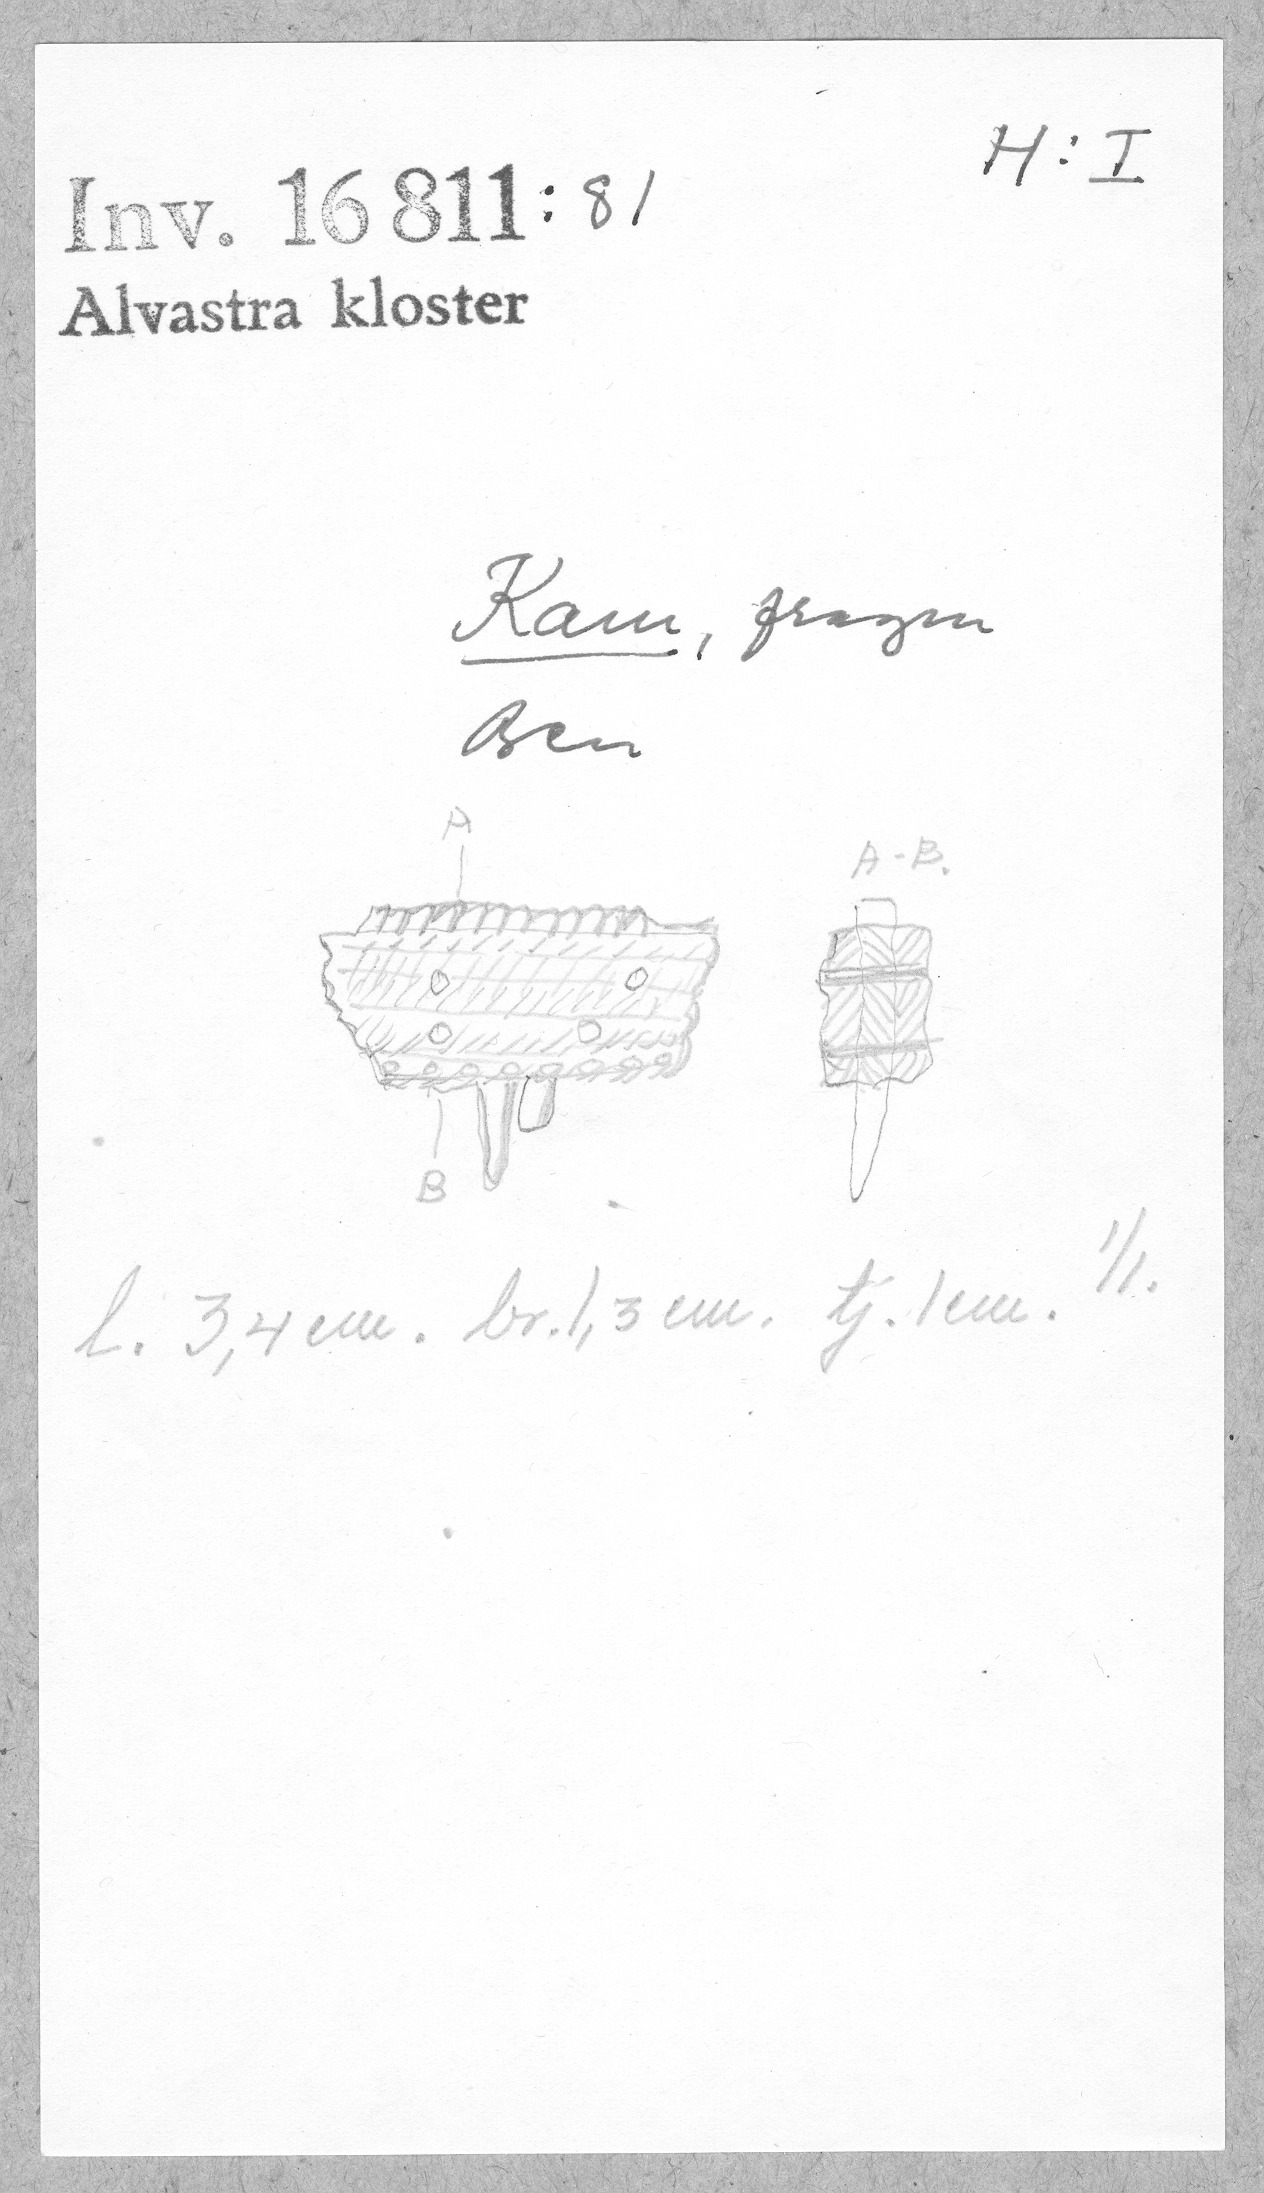 H: I
Inv. 16 811:81
Alvastra kloster
Kam, fragm
Ben
A
A-B.
B
1/1.
l. 3,4 cm. br. 1,3 cm. tj. 1 cm.